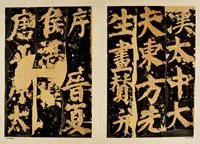 漢太中大
夫東方先
生畫贊并
序晉夏
侯湛
唐太